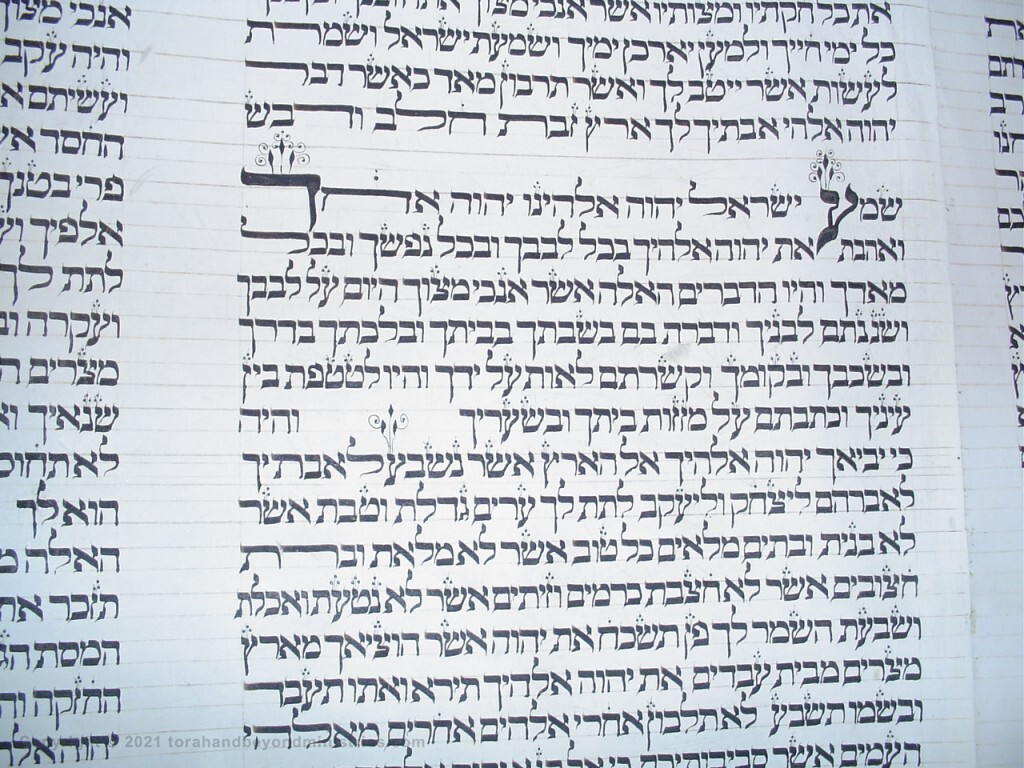 את כל חקתיו ומצותיו אשר אנכי מצוך
כל ימי חייך ולמען יארכן ימיך ושמעת ישראל ושמרת
לעשות אשר ייטב לך ואשר תרבון מאד כאשר דבר
יהוה אלהי אבתיך לך ארץ זבת חלב ודבש
שמע ישראל יהוה אלהינו יהוה אחד
ואהבת את יהוה אלהיך בכל לבבך ובכל נפשך ובכל
מאדך והיו הדברים האלה אשר אנכי מצוך היום על לבבך
ושננתם לבניך ודברת בם בשבתך בביתך ובלכתך בדרך
ובשכבך ובקומך וקשרתם לאות על ידך והיו לטטפת בין
עיניך וכתבתם על מזזות ביתך ובשעריך והיה
כי יביאך יהוה אלהיך אל הארץ אשר נשבע לאבתיך
לאברהם ליצחק וליעקב לתת לך ערים גדלת וטבת אשר
לא בנית ובתים מלאים כל טוב אשר לא מלאת וברת
חצובים אשר לא חצבת כרמים וזיתים אשר לא נטעת ואכלת
ושבעת השמר לך פן תשכח את יהוה אשר הוציאך מארץ
מצרים מבית עבדים את יהוה אלהיך תירא ואתו תעבד
ובשמו תשבע לא תלכון אחרי אלהים אחרים מאלהי
העמים אשר סביבותיכם כי
אנכי מצוך
והיה עקב
ועשיתם
החסד
פרי בטנך
אלפיך
לתת לך
ועקרה
מצרים
שנאיך
לא תחוס
הוא לך
האלה
תזכר את
המסת
החזקה
יהוה
2021 torahandbeyondministries.com